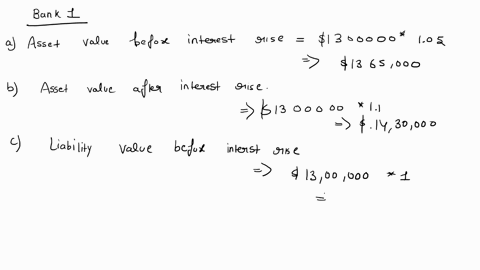 Bank 1
a) Asset value before interest rise = $1300000 * 1.05
=> $1365,000
b) Asset value after interest rise.
=> $1300000 * 1.1
=> $.14,30,000
c) Liability value before interst rise
=> $13,00,000 * 1
=